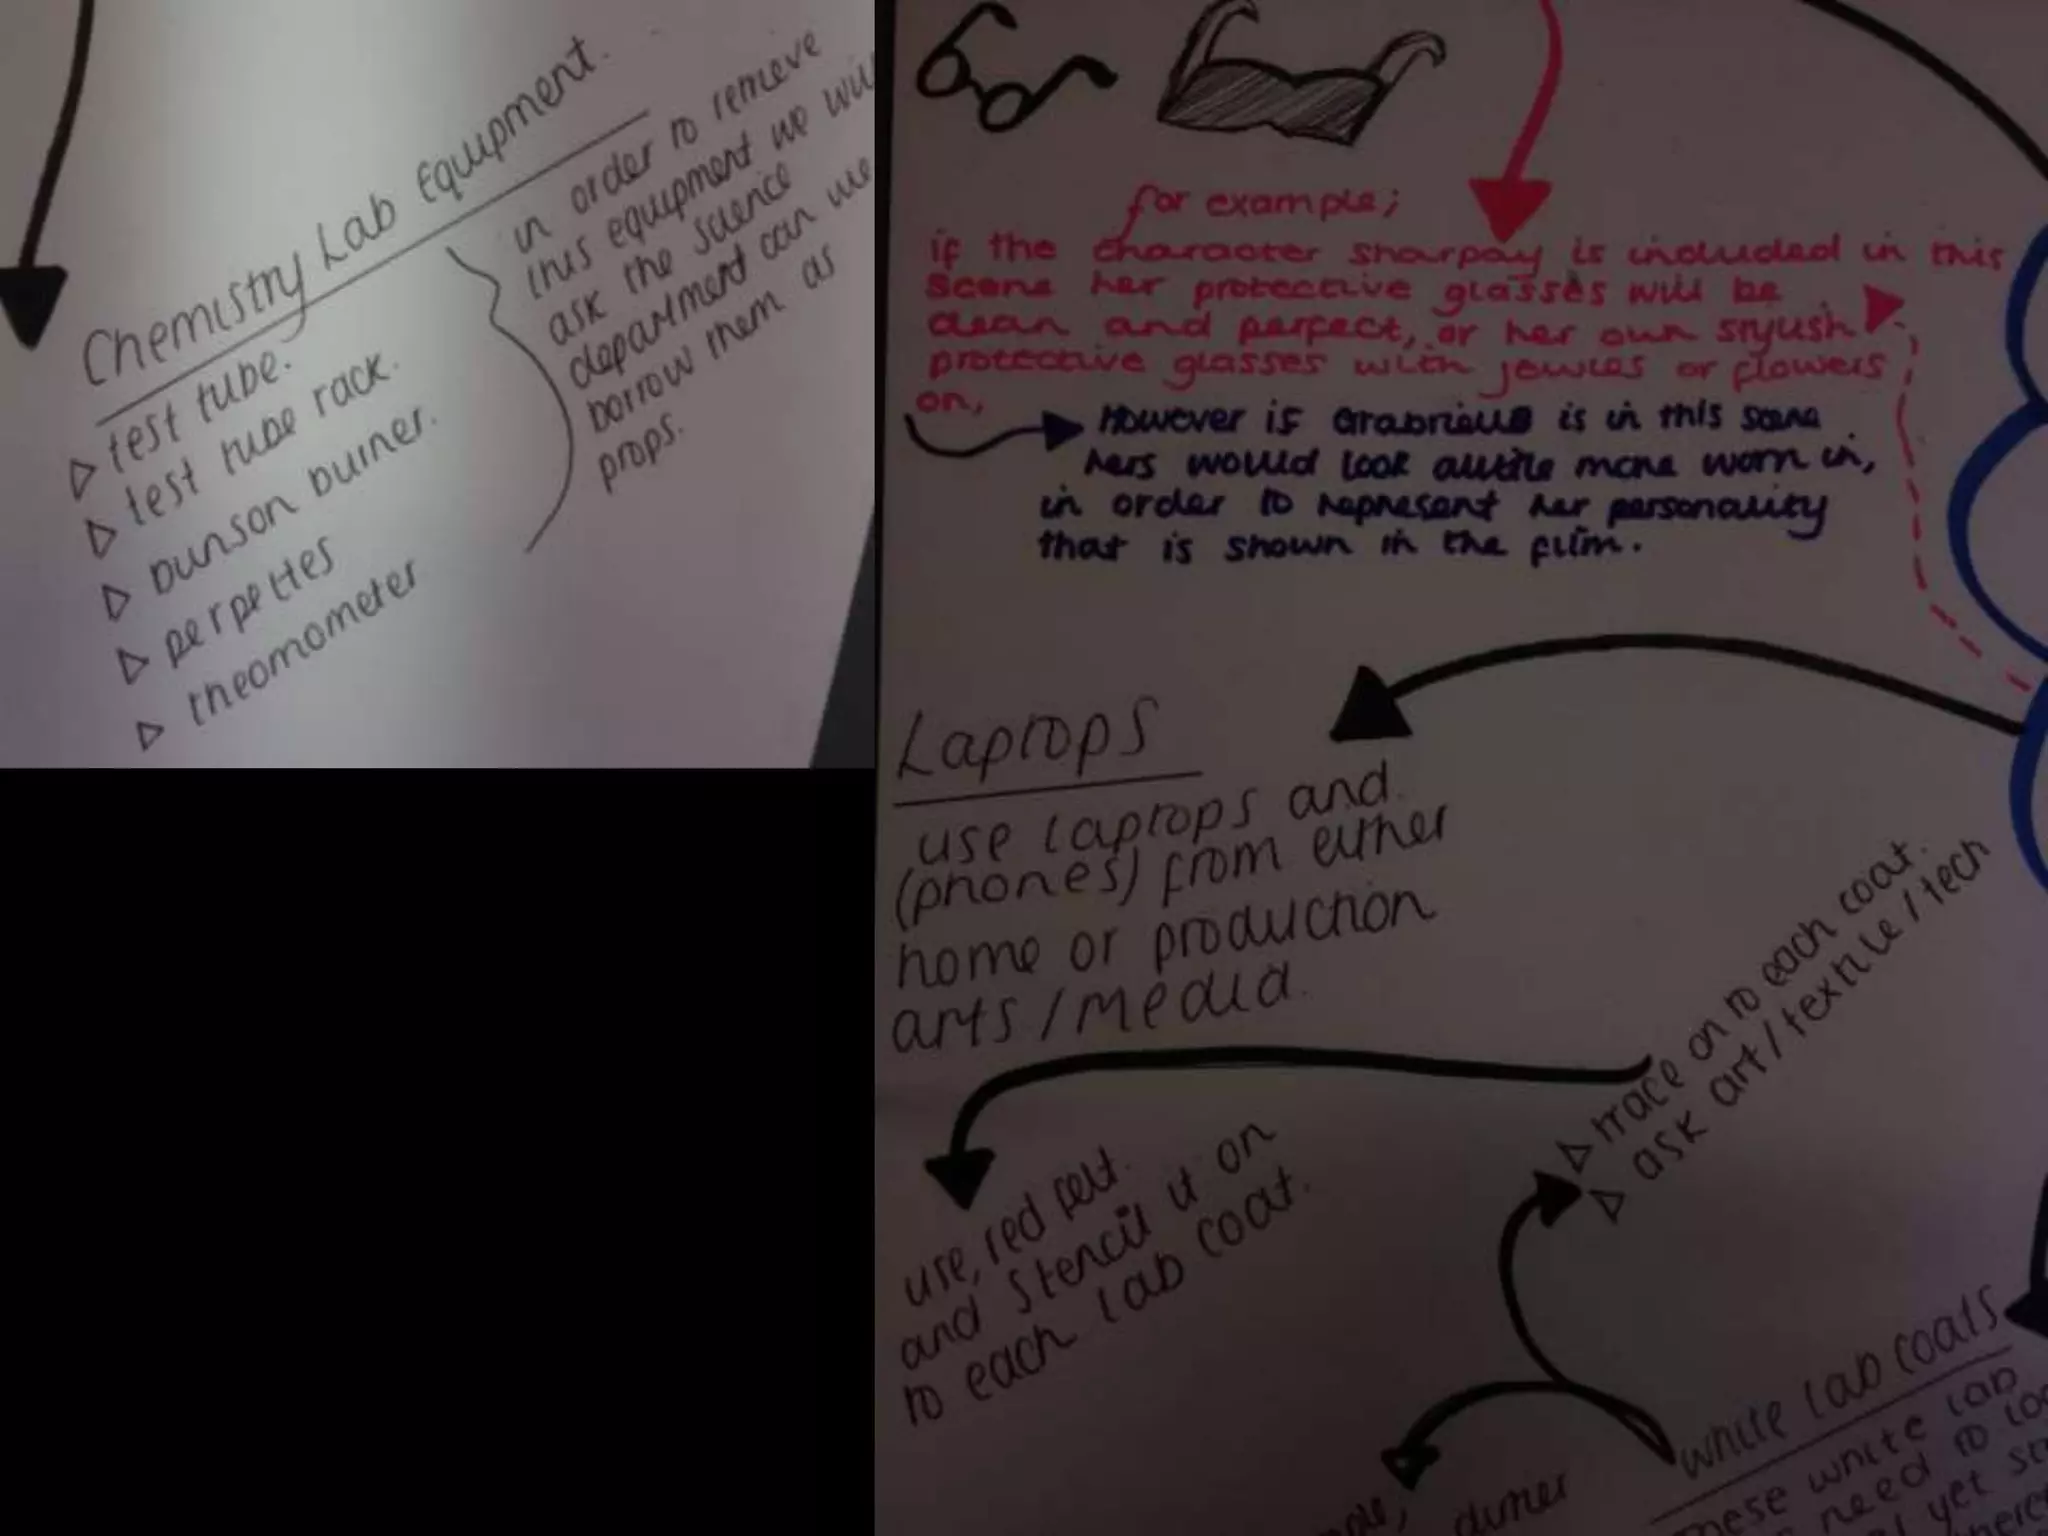 Chemistry Lab Equipment.
▷ test tube.
▷ test tube rack.
▷ bunson burner.
▷ perpettes
▷ theomometer
in order to retrieve
this equipment we will
ask the science
department can we
borrow them as
props.
for example;
if the character sharpay is included in this
scene her protective glasses will be
clean and perfect, or her own stylish
protective glasses with jewles or flowers
on,
However if Grabriella is in this scene
hers would look alittle more worn in,
in order to represent her personality
that is shown in the film.
Laptops
use laptops and
(phones) from either
home or production
arts/media.
▷ trace on to each coat.
▷ ask art/textile/tech
use, red felt.
and stencil it on
to each lab coat.
white lab coats
these white lab
need to
yet